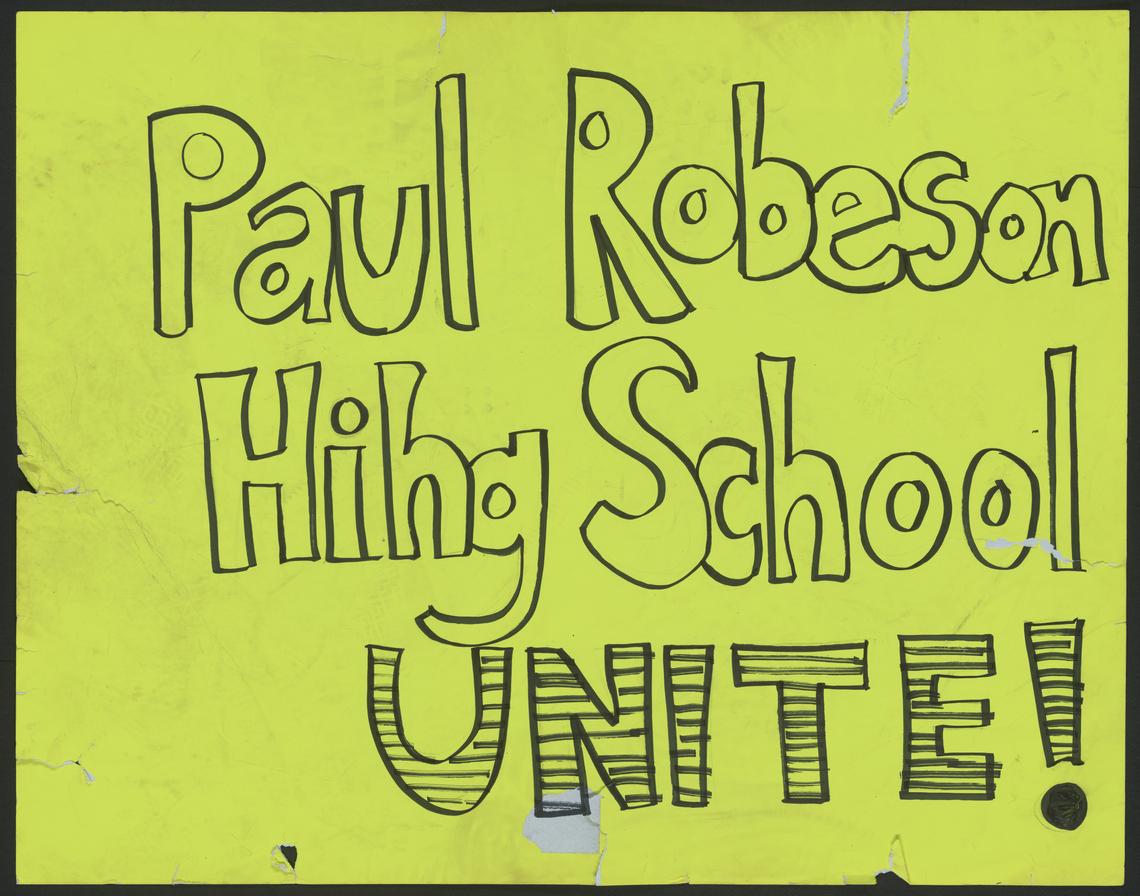 Paul Robeson
Hihg School
UNITE!